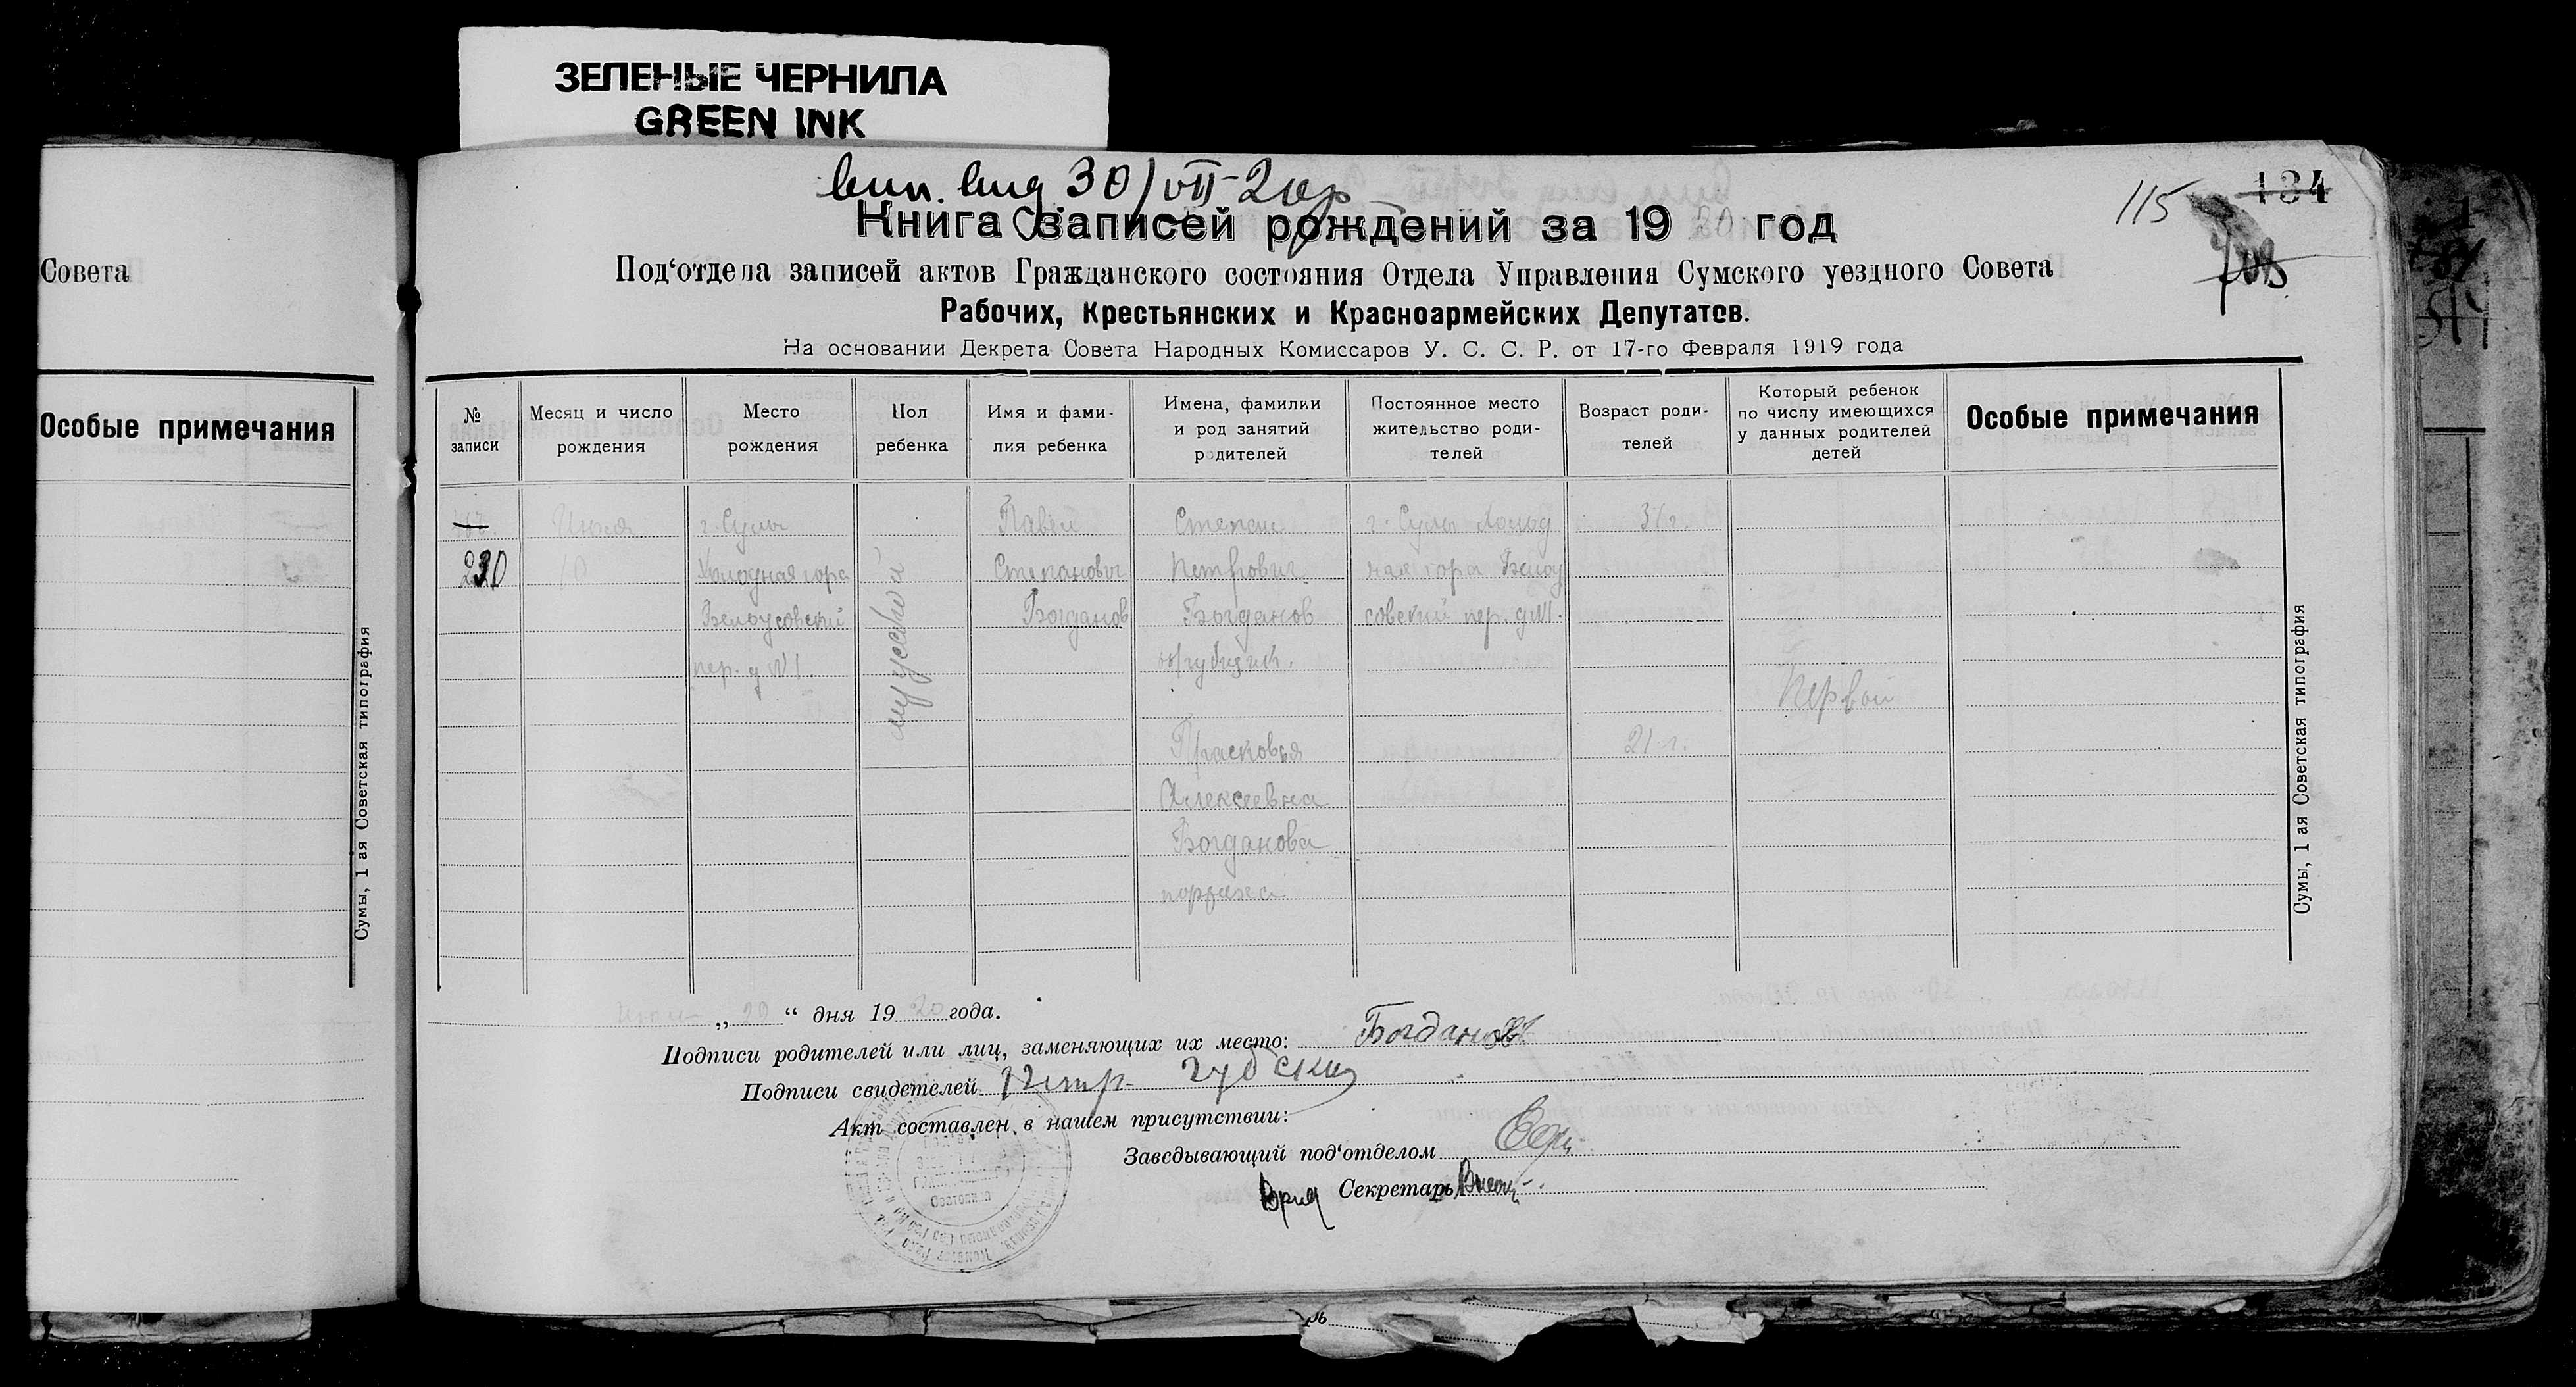 ЗЕЛЕНЫЕ ЧЕРНИЛА
GREEN INK
30/VII-20г
115
134
Книга записей рождений за 1920 год
Под‘отдела записей актов Гражданского состояния Отдела Управления Сумского уездного Совета
Рабочих, Крестьянских и Красноармейских Депутатов.
На основании Декрета Совета Народных Комиссаров У. С. С. Р. от 17-го Февраля 1919 года
Совета
Особые примечания
Сумы, 1 ая Советская типография
№ записи
Месяц и число рождения
Место рождения
Пол ребенка
Имя и фами-
лия ребенка
Имена, фамилии
и род занятий
родителей
Постоянное место
жительство роди-
телей
Возраст роди-
телей
Который ребенок
по числу имеющихся
у данных родителей
детей
Особые примечания
230
Июня
10
г. Сумы
Холодная гора
Белоусовский
пер. д №1.
мужской
Павел
Степанович
Богданов
Степан
Петрович
Богданов
Прасковья
Алексеевна
Богданова
г. Сумы Холод
ная гора Белоу
совский пер. д №1.
31 г.
21 г.
Первый
Сумы, 1 ая Советская типография
„ 29 “ дня 1920 года.
Подписи родителей или лиц, заменяющих их место: Богдановъ
Подписи свидетелей Петр
Акт составлен в нашем присутствии:
Заведывающий под‘отделом
Врид Секретарь